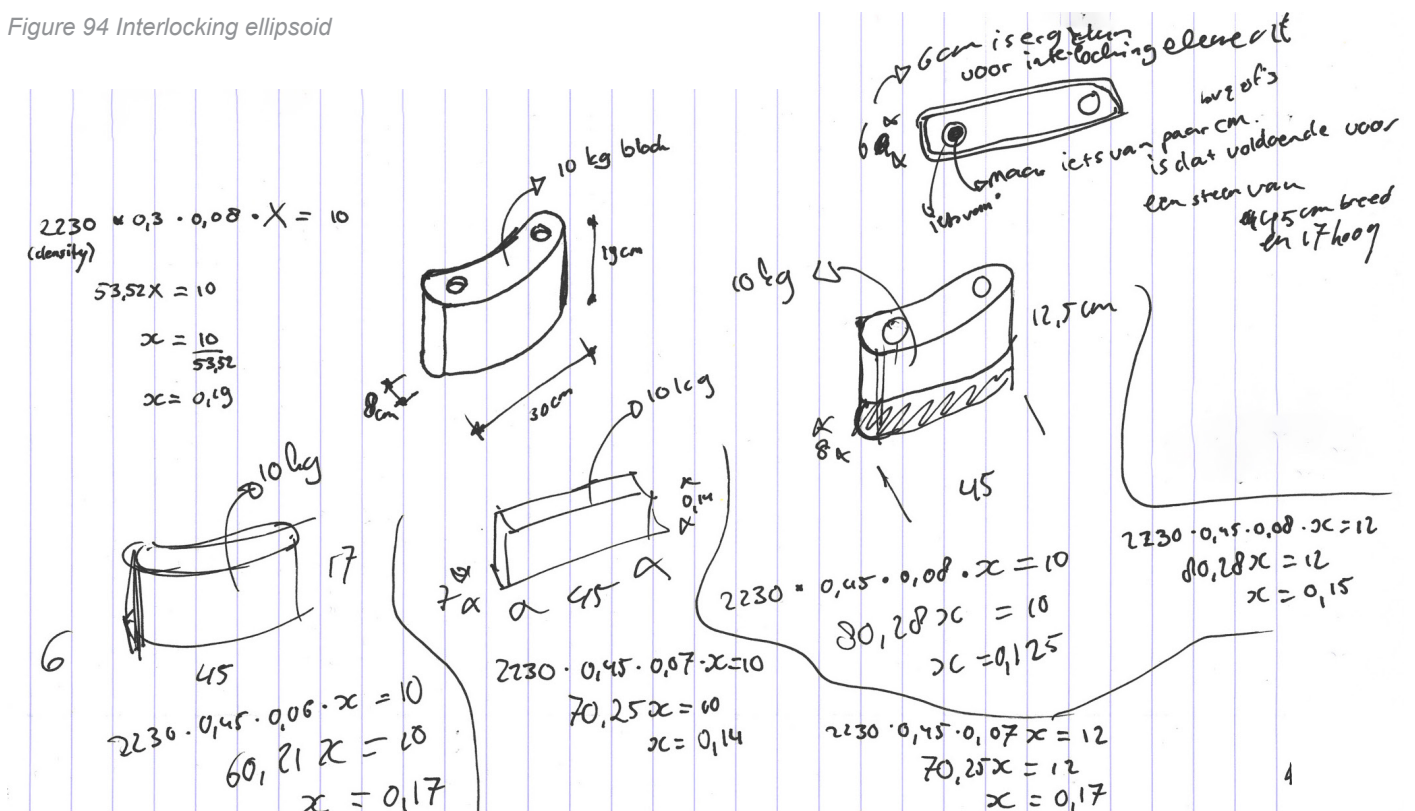 Figure 94 Interlocking ellipsoid
6cm is erg klein
voor interlocking element
6
maar iets van paar cm.
is dat voldoende voor
een steen van
45 cm breed
en 17 hoog
2230 * 0,3 · 0,08 · X = 10
(density)
53,52X = 10
x = 10
53,52
x = 0,19
10 kg block
19cm
30cm
8cm
10 kg
12,5 cm
8
45
10 kg
17
6
45
2230 · 0,45 · 0,06 · x = 10
60,21 x = 10
x = 0,17
10kg
0,14
7
45
2230 · 0,45 · 0,07 · x = 10
70,25x = 10
x = 0,14
2230 * 0,45 · 0,08 · x = 10
80,28x = 10
x = 0,125
2230 · 0,45 · 0,08 · x = 12
80,28x = 12
x = 0,15
2230 · 0,45 · 0,07 x = 12
70,25x = 12
x = 0,17